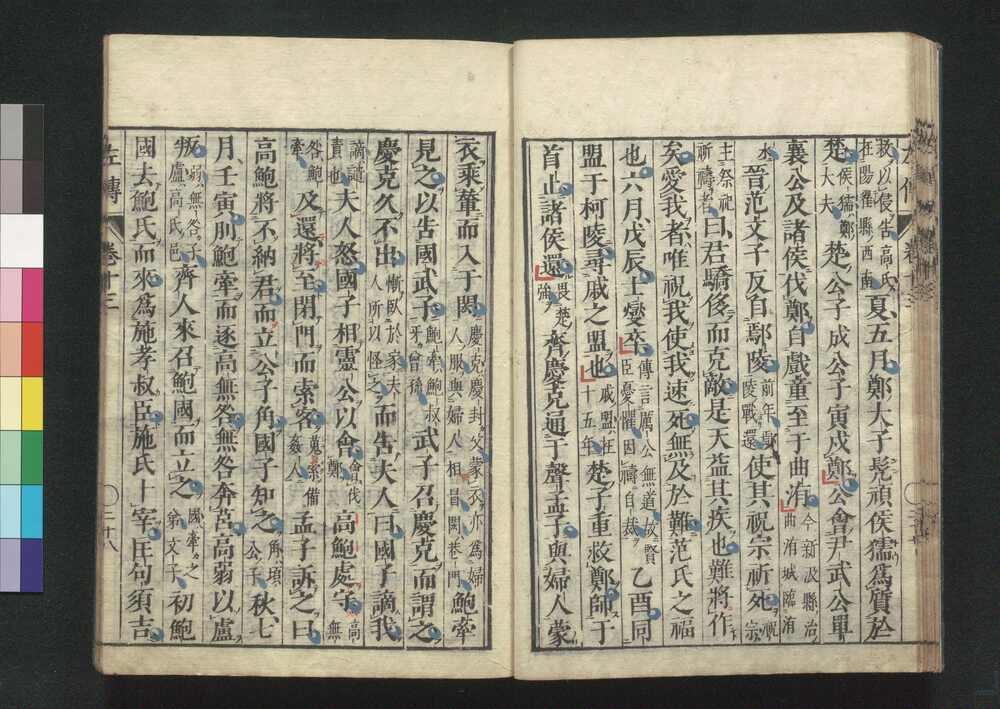 救以侵告高氏在陽翟縣西南夏五月鄭大子髠頑侯獳爲質於
楚侯獳鄭大夫楚公子成公子寅戍鄭公會尹武公單
襄公及諸侯伐鄭自戲童至于曲洧今新汲縣治曲洧城臨洧
水晉范文子反自鄢陵前年鄢陵戰還使其祝宗祈死祝宗
主祭祀祈禱者曰君驕侈而克敵是天益其疾也難將作
矣愛我者唯祝我使我速死無及於難范氏之福
也六月戊辰士燮卒傳言厲公無道故賢臣憂懼因禱自裁乙酉同
盟于柯陵尋戚之盟也戚盟在十五年楚子重救鄭師于
首止諸侯還畏楚強齊慶克通于聲孟子與婦人蒙
衣乘輦而入于閎慶克慶封父蒙衣亦爲婦人服與婦人相冒閎巷門鮑牽
見之以告國武子鮑牽鮑叔牙曾孫武子召慶克而謂之
慶克久不出慚臥於家夫人所以怪之而告夫人曰國子謫我
謫譴責也夫人怒國子相靈公以會會伐鄭高鮑處守高無
咎鮑牽及還將至閉門而索客蒐索備姦人孟子訴之曰
高鮑將不納君而立公子角國子知之角頃公子秋七
月壬寅刖鮑牽而逐高無咎無咎奔莒高弱以盧
叛弱無咎子盧高氏邑齊人來召鮑國而立之國牽之弟文子初鮑
國去鮑氏而來爲施孝叔臣施氏卜宰匡句須吉
左傳
卷十三
二十八